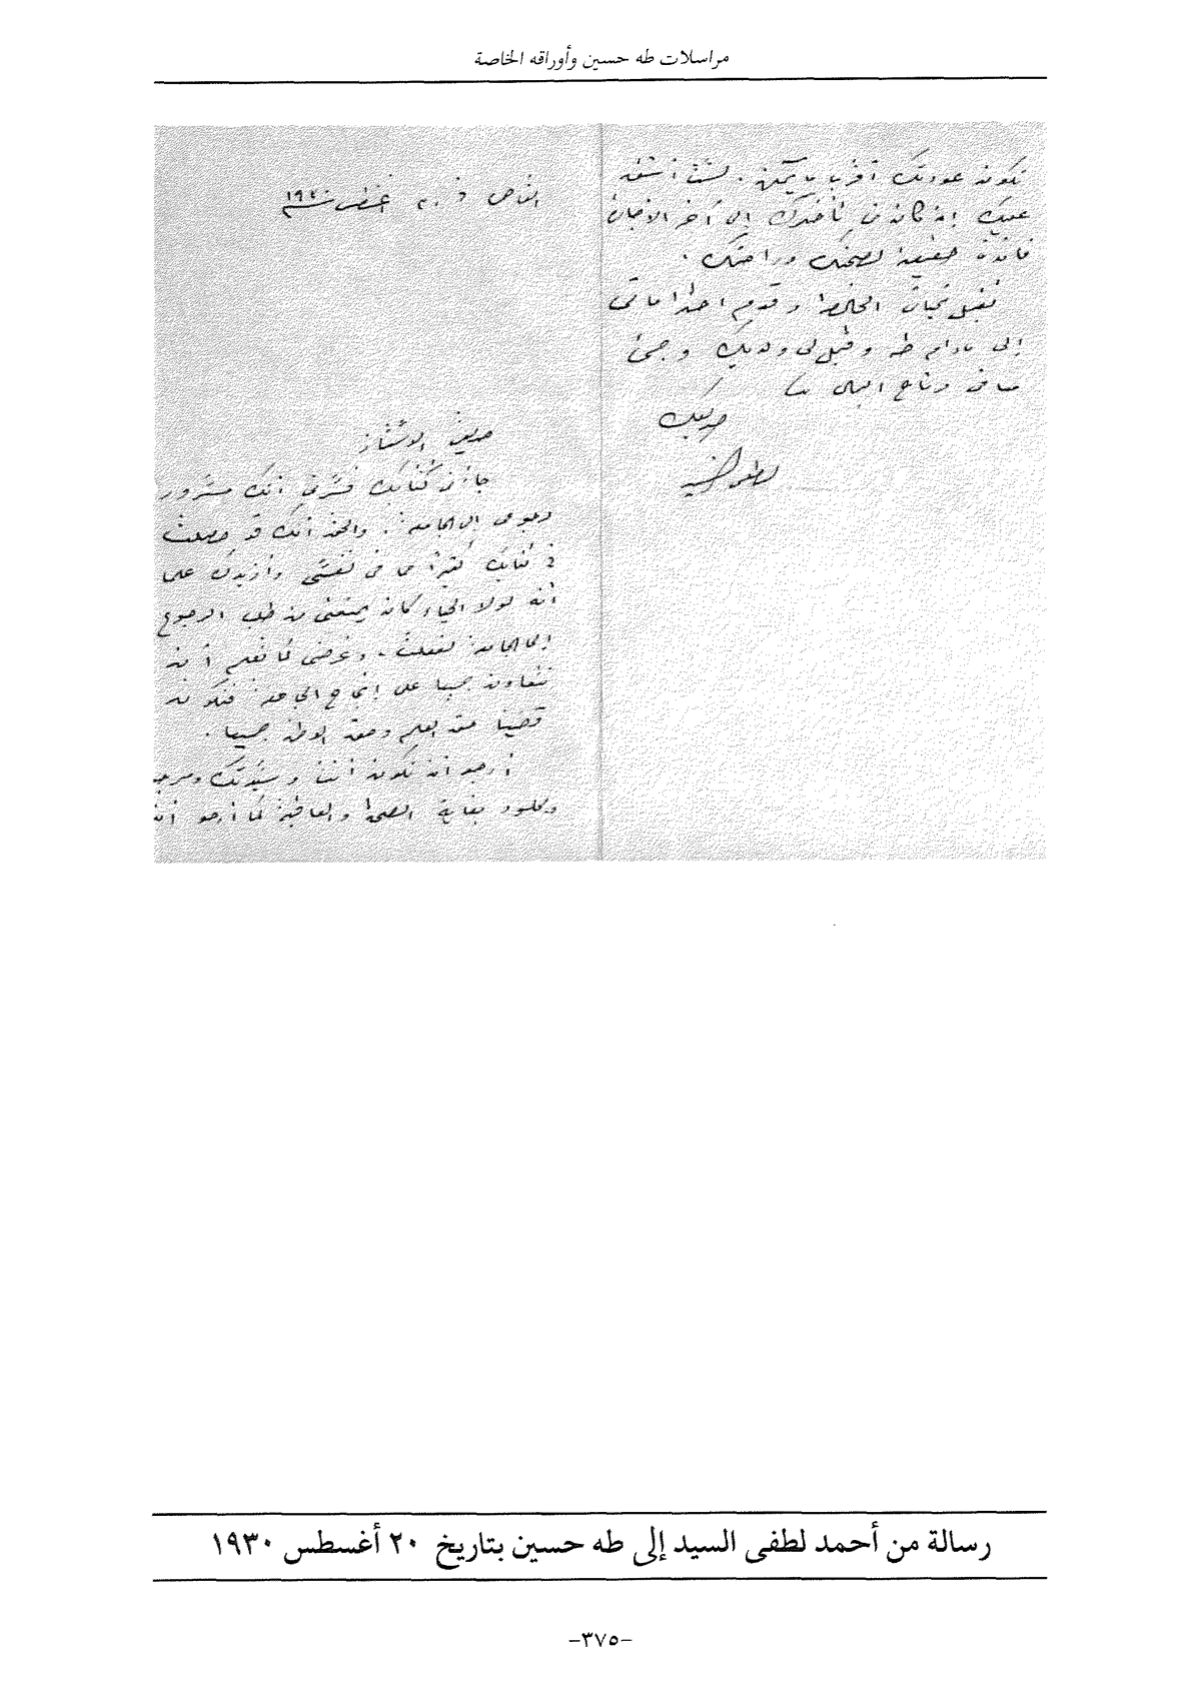 مراسلات طه حسين وأوراقه الخاصة
القاهرة فى ٢٠ أغسطس سنة ١٩٣٠
صديقى الأستاذ
جاءنى كتابك فسرنى أنك مسرور
برجوعى إلى الجامعة. والحق أنك قد
فى كتابك كثيرا مما فى نفسى وأزيدك علما
أنه لولا الحياء كان يمنعنى من طلب الرجوع
إلى الجامعة لفعلت. وغرضى كما تعلم أن
نتعاون جميعا على إنجاح الجامعة فنكون قد
قضينا حق العلم وحق الوطن جميعا.
أرجو أن تكون أنت وسيدتك
بغاية الصحة والعافية كما أرجو أن
تكون عودتك أقرب ما يمكن. لست أشق
عليك إن كان فى تأخيرك إلى آخر الأجازة
فائدة حقيقية لصحتك وراحتك.
تقبل تحيات الخالصة وقدم احتراماتى
إلى مدام طه وقبل لى ولديك
معافى مرتاح البال
صديقك
لطفى السيد
رسالة من أحمد لطفى السيد إلى طه حسين بتاريخ ٢٠ أغسطس ١٩٣٠
-٣٧٥-